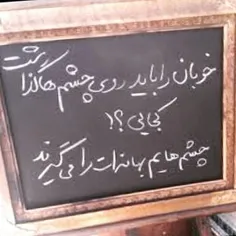 خوبان را باید روی چشم ها گذاشت
کجایی؟!
چشم هایم بهانه ات را می گیرند